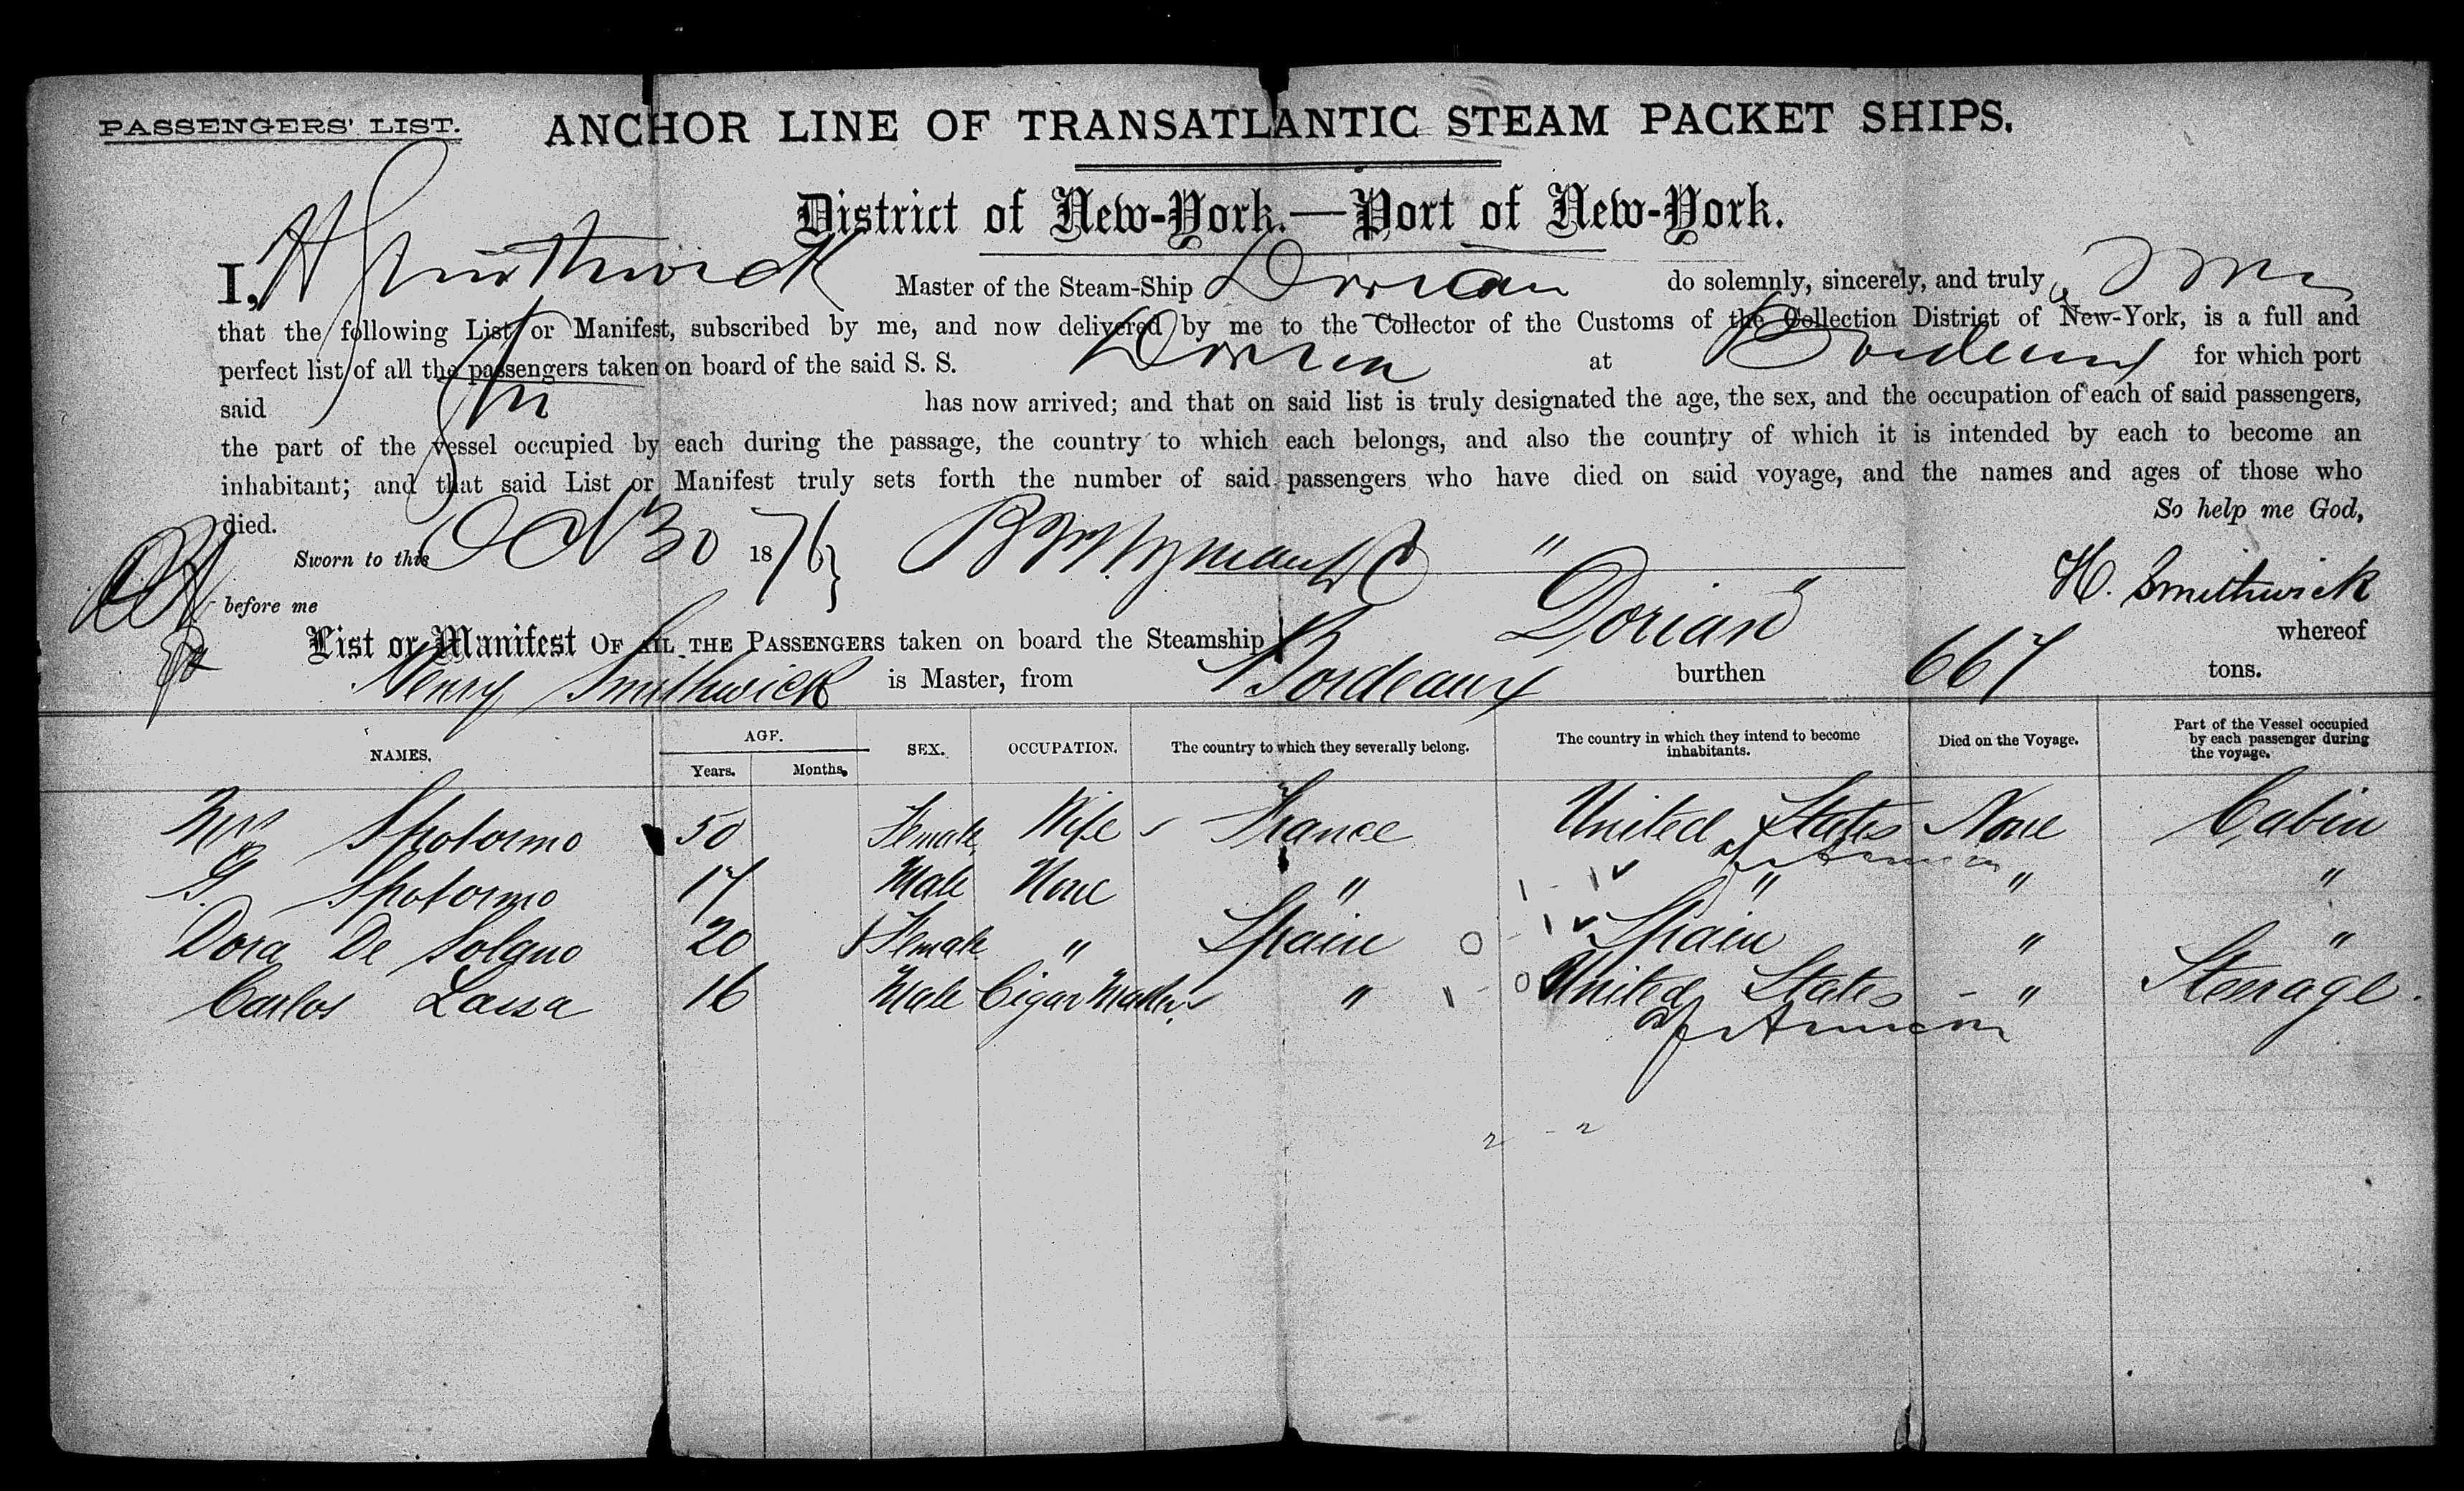 PASSENGERS' LIST. ANCHOR LINE OF TRANSATLANTIC STEAM PACKET SHIPS.
District of New-York.—Port of New-York.
I, H Smithwick Master of the Steam-Ship Dorian do solemnly, sincerely, and truly
that the following List or Manifest, subscribed by me, and now delivered by me to the Collector of the Customs of the Collection District of New-York, is a full and
perfect list of all the passengers taken on board of the said S. S. Dorian at Bordeaux for which port
said has now arrived; and that on said list is truly designated the age, the sex, and the occupation of each of said passengers,
the part of the vessel occupied by each during the passage, the country to which each belongs, and also the country of which it is intended by each to become an
inhabitant; and that said List or Manifest truly sets forth the number of said passengers who have died on said voyage, and the names and ages of those who
died. So help me God,
Sworn to this Oct 30 1876 H. Smithwick
before me
List or Manifest OF ALL THE PASSENGERS taken on board the Steamship "Dorian" whereof
Henry Smithwick is Master, from Bordeaux burthen 667 tons.
NAMES. AGE. Years. Months. SEX. OCCUPATION. The country to which they severally belong. The country in which they intend to become inhabitants. Died on the Voyage. Part of the Vessel occupied by each passenger during the voyage.
Mrs Spotorno 50 Female Wife France United States None Cabin
of America
G. Spotorno 17 Male None " " " "
Dora De 20 Female " Spain Spain " "
Carlos 16 Male Cigar Maker " United States " Steerage.
of America
2 - 2